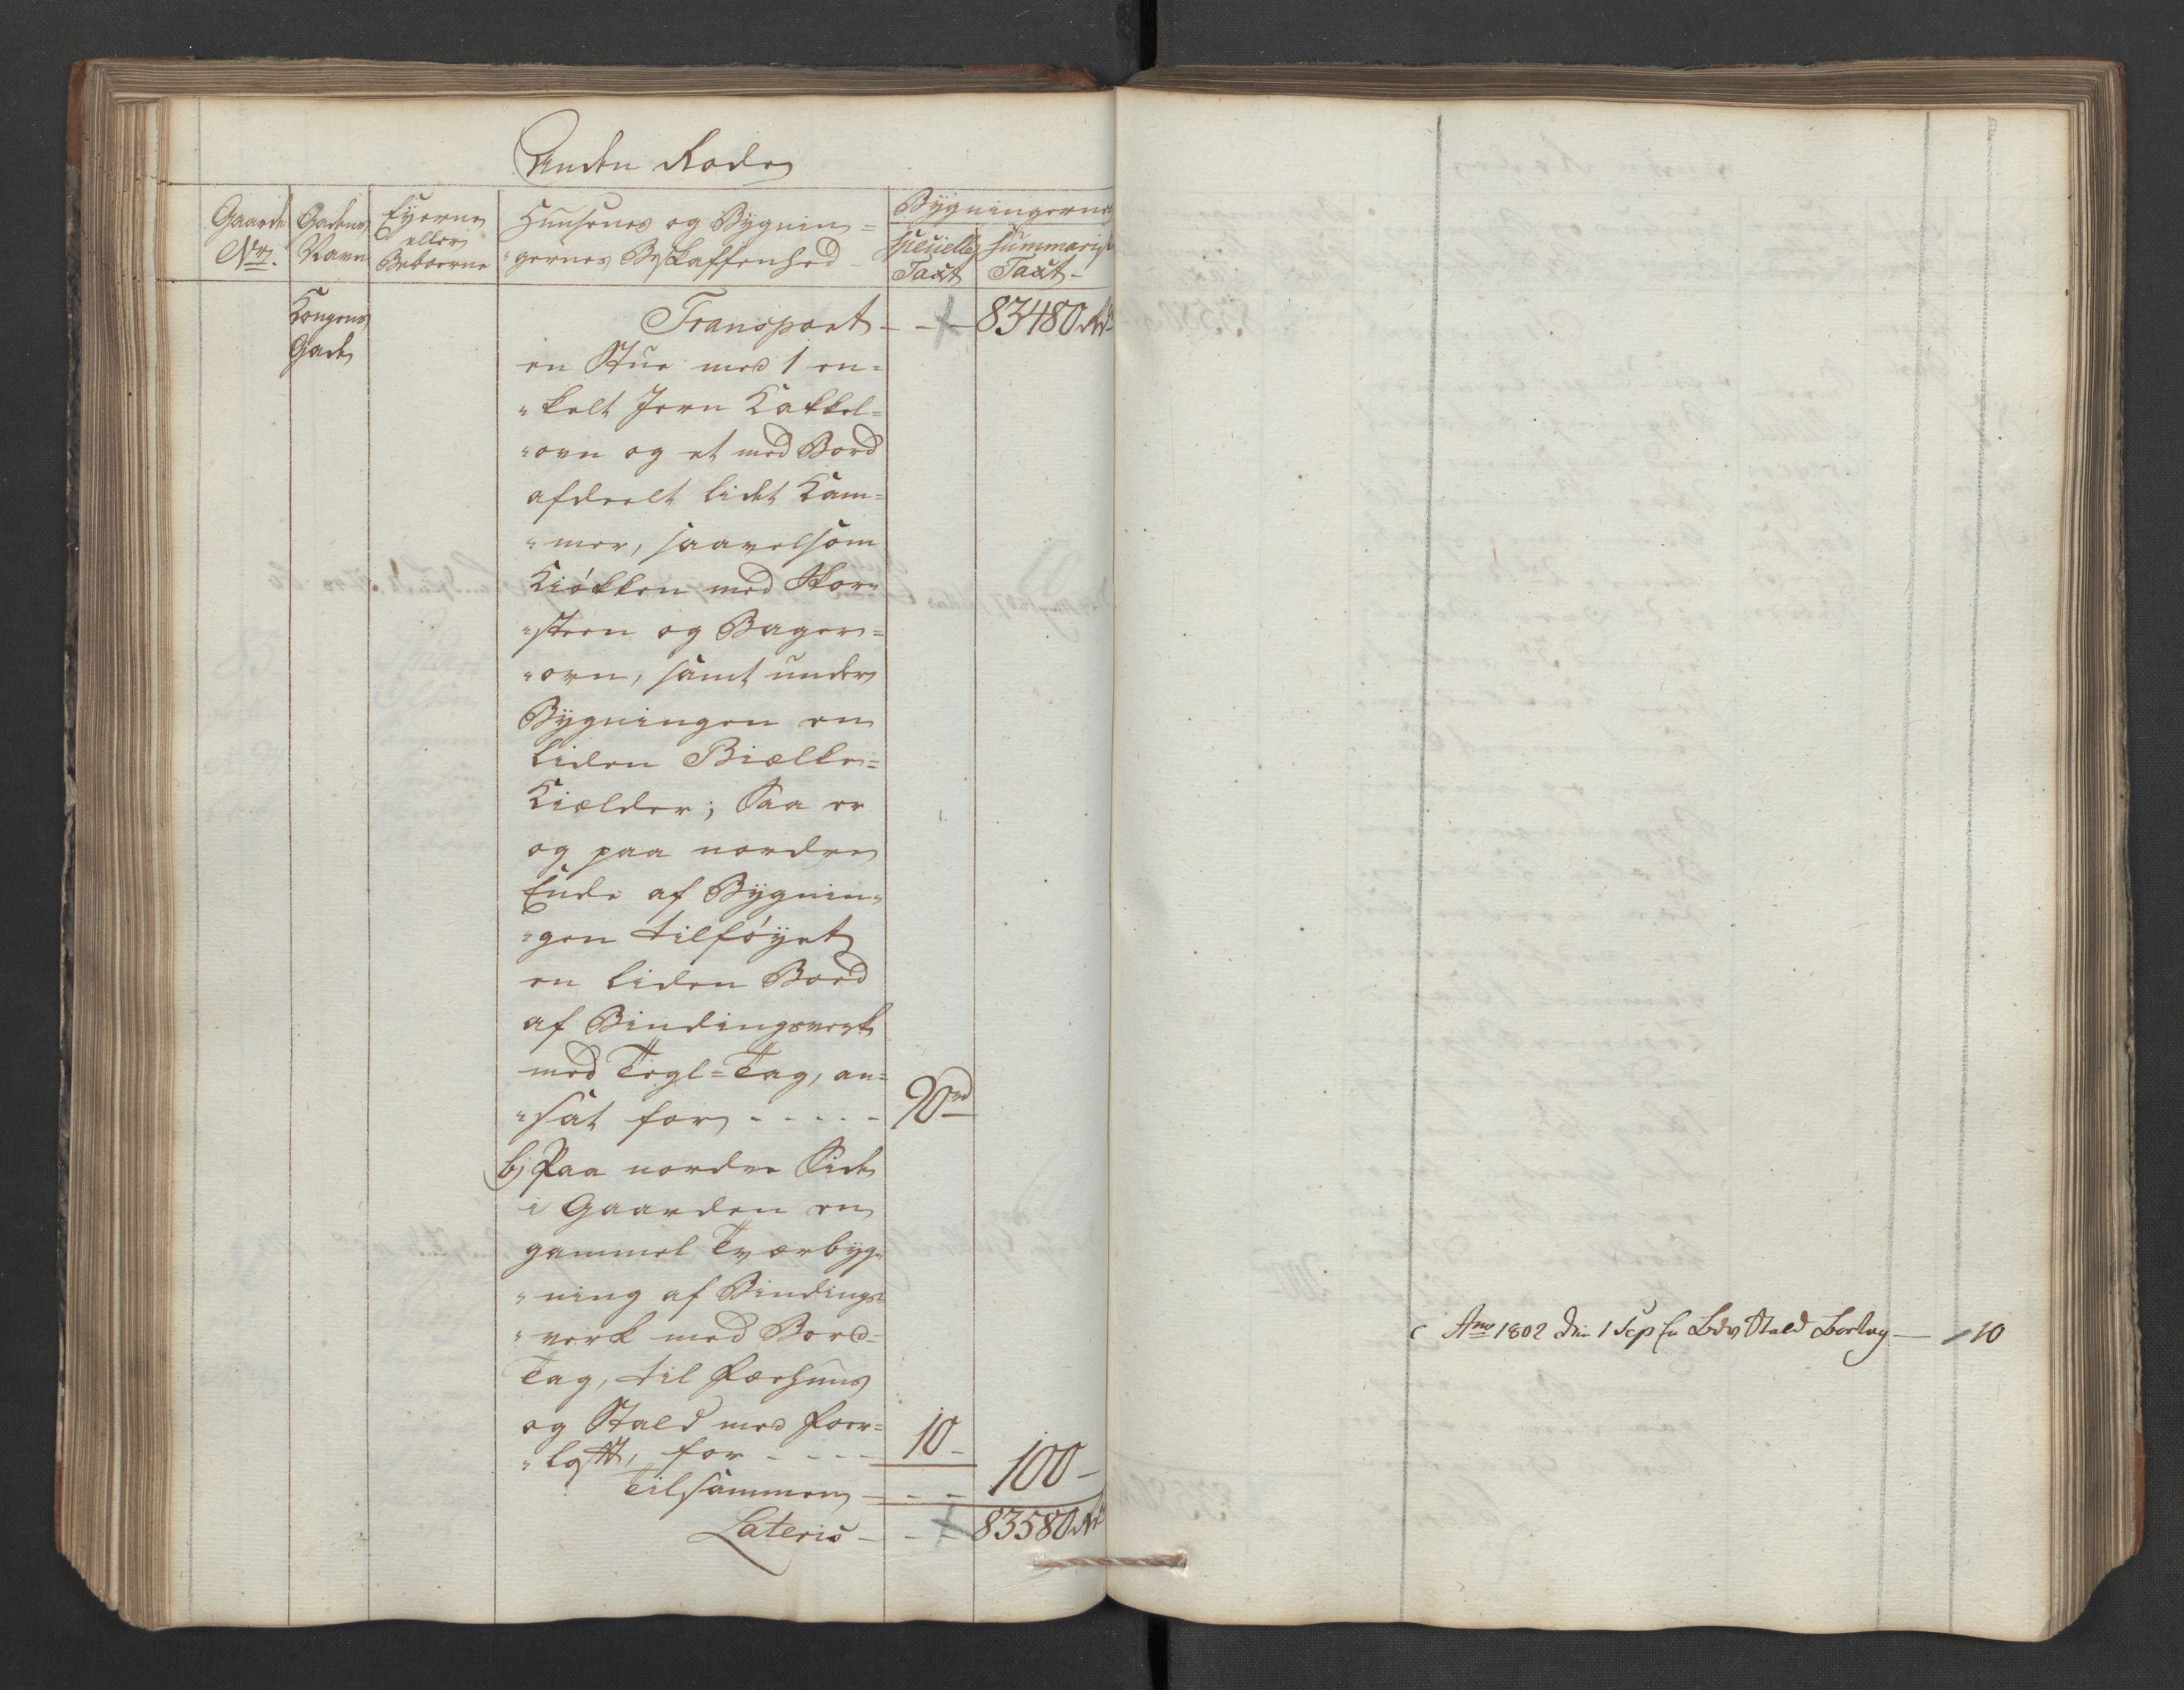 Anden Rode
Gaarde Nr. Gadens Navn Eyerne eller Beboerne Huusenes og Bygnin= "gernes Beskaffenhed Bygningernes specielle Taxt summariske Taxt
Kongens Gade
Transport - - - 83480 Rd
en Stue med 1 en=
"kelt Jern Kakkel=
"ovn og et med Bord
afdeelt lidet Kam=
"mer, saavelsom
Kiøkken med Skor=
"steen og Bager=
"ovn, samt under
Bygningen en
liden Biælke=
Kielder; Saa er
og paa nordre
Ende af Bygnin=
"gen tilføyet
en liden Boed
af Bindingsverk
med Tegl=Tag, an=
"sat for - - - - - 90 rd
b) Paa nordre Side
i Gaarden en
gammel Tværbyg=
"ning af Bindings=
"verk med Bord=
Tag, til Færhuus
og Stald med Foer=
"loftt, for - - - - 10 -
Tilsammen - - - 100 -
Lateris - - - 83580 Rd
c Ano 1802 den 1 Sep Stald - 10